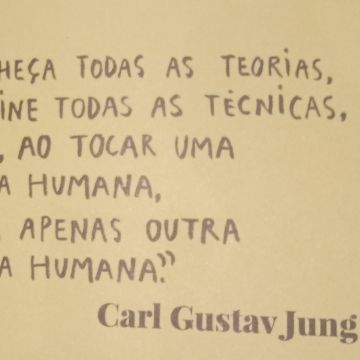 HEÇA TODAS AS TEORIAS,
INE TODAS AS TÉCNICAS,
, AO TOCAR UMA
A HUMANA,
APENAS OUTRA
A HUMANA."
Carl Gustav Jung